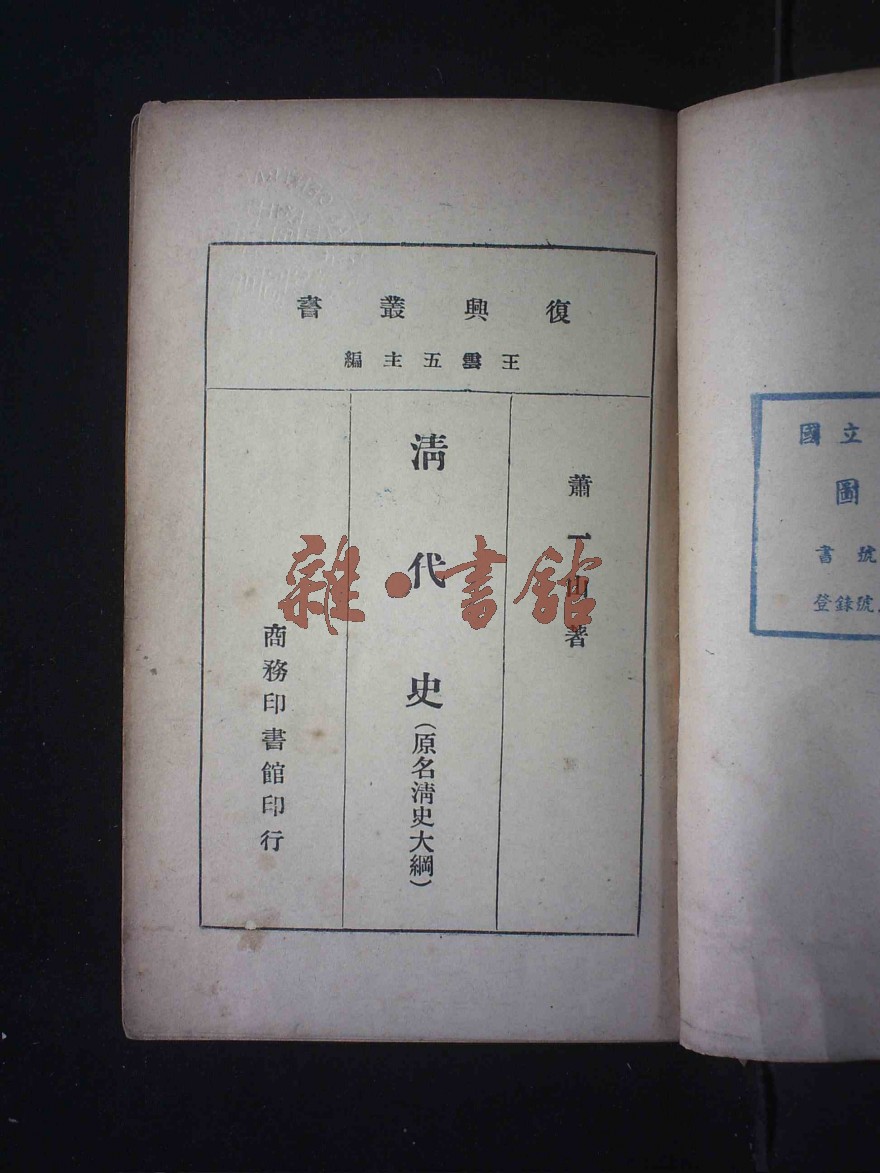 復興叢書
王雲五主編
蕭一山著
清代史（原名清史大綱）
商務印書館印行
雜·書館
國立
圖
書號
登錄號